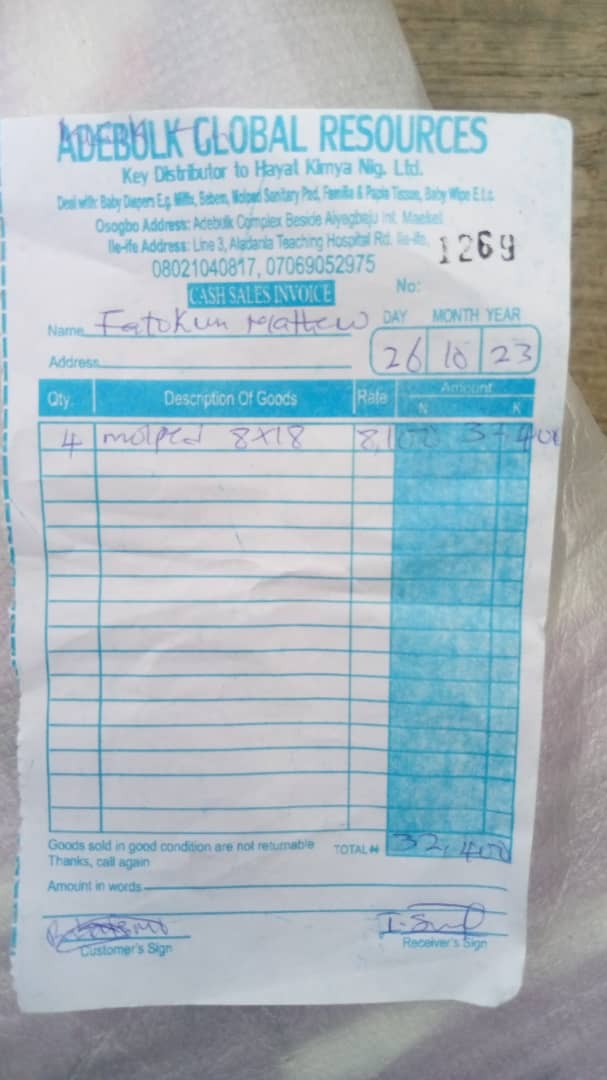 ADEBULK GLOBAL RESOURCES
Key Distributor to Hayat Kimya Nig. Ltd.
Deal with: Baby Diapers E.g Molfix, Bebem, Molped Sanitary Pad, Familia & Papia Tissue, Baby Wipe E.t.c
Osogbo Address: Adebulk Complex Beside Aiyegbaju Int. Market
Ile-ife Address: Line 3, Aladanla Teaching Hospital Rd. Ile-ife.
1269
08021040817, 07069052975
No:
CASH SALES INVOICE
Name Fatokun Mathew
DAY MONTH YEAR
Address
26 10 23
Qty. Description Of Goods Rate Amount
N K
4 molped 8X18 8,100 32,400
Goods sold in good condition are not returnable TOTAL ₦ 32,400
Thanks, call again
Amount in words
Customer's Sign Receiver's Sign